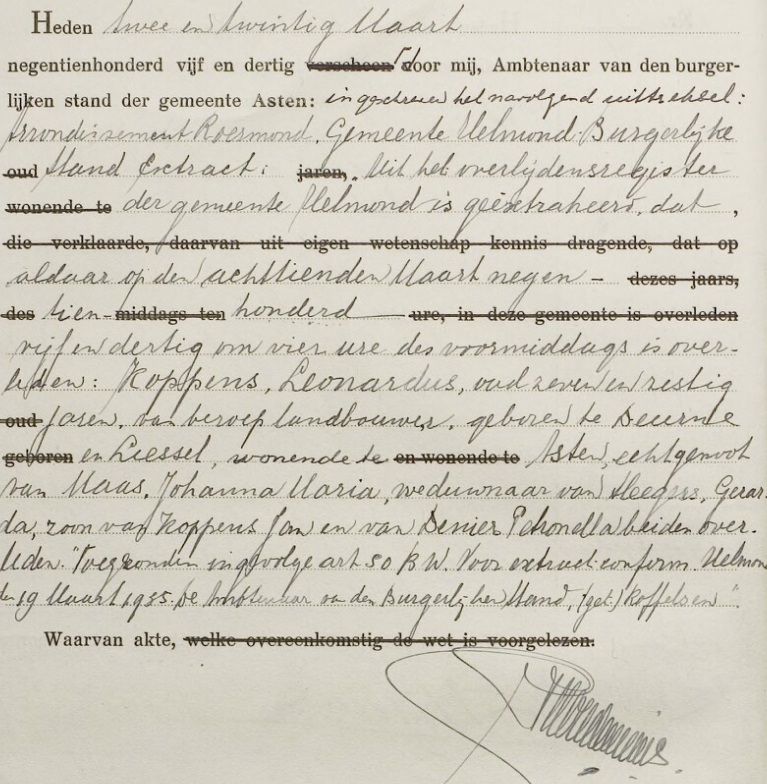 Heden twee en twintig Maart
negentienhonderd vijf en dertig verscheen door mij, Ambtenaar van den burger-
lijken stand der gemeente Asten: ingeschreven het navolgend uittreksel:
Arrondissement Roermond. Gemeente Helmond. Burgerlijke
oud Stand Extract: jaren, "Uit het overlijdensregister
wonende te der gemeente Helmond is geëxtraheerd, dat ,
die verklaarde, daarvan uit eigen wetenschap kennis dragende, dat op
aldaar op den achttienden Maart negen - dezes jaars,
des tien- middags ten honderd ure, in deze gemeente is overleden
vijf en dertig om vier ure des voormiddags is over-
leden: Koppens, Leonardus, oud zeven en zestig
oud jaren, van beroep landbouwer, geboren te Deurne
geboren en Liessel, wonende te en wonende te Asten, echtgenoot
van Maas, Johanna Maria, weduwnaar van Heegers, Gerar-
da, zoon van Koppens Jan en van Denier Petronella beiden over-
leden." Toegezonden ingevolge art 50 B.W. Voor extract conform. Helmon
den 19 Maart 1935. De Ambtenaar van den Burgerlijken Stand, (get.) Koffelsen".
Waarvan akte, welke overeenkomstig de wet is voorgelezen.